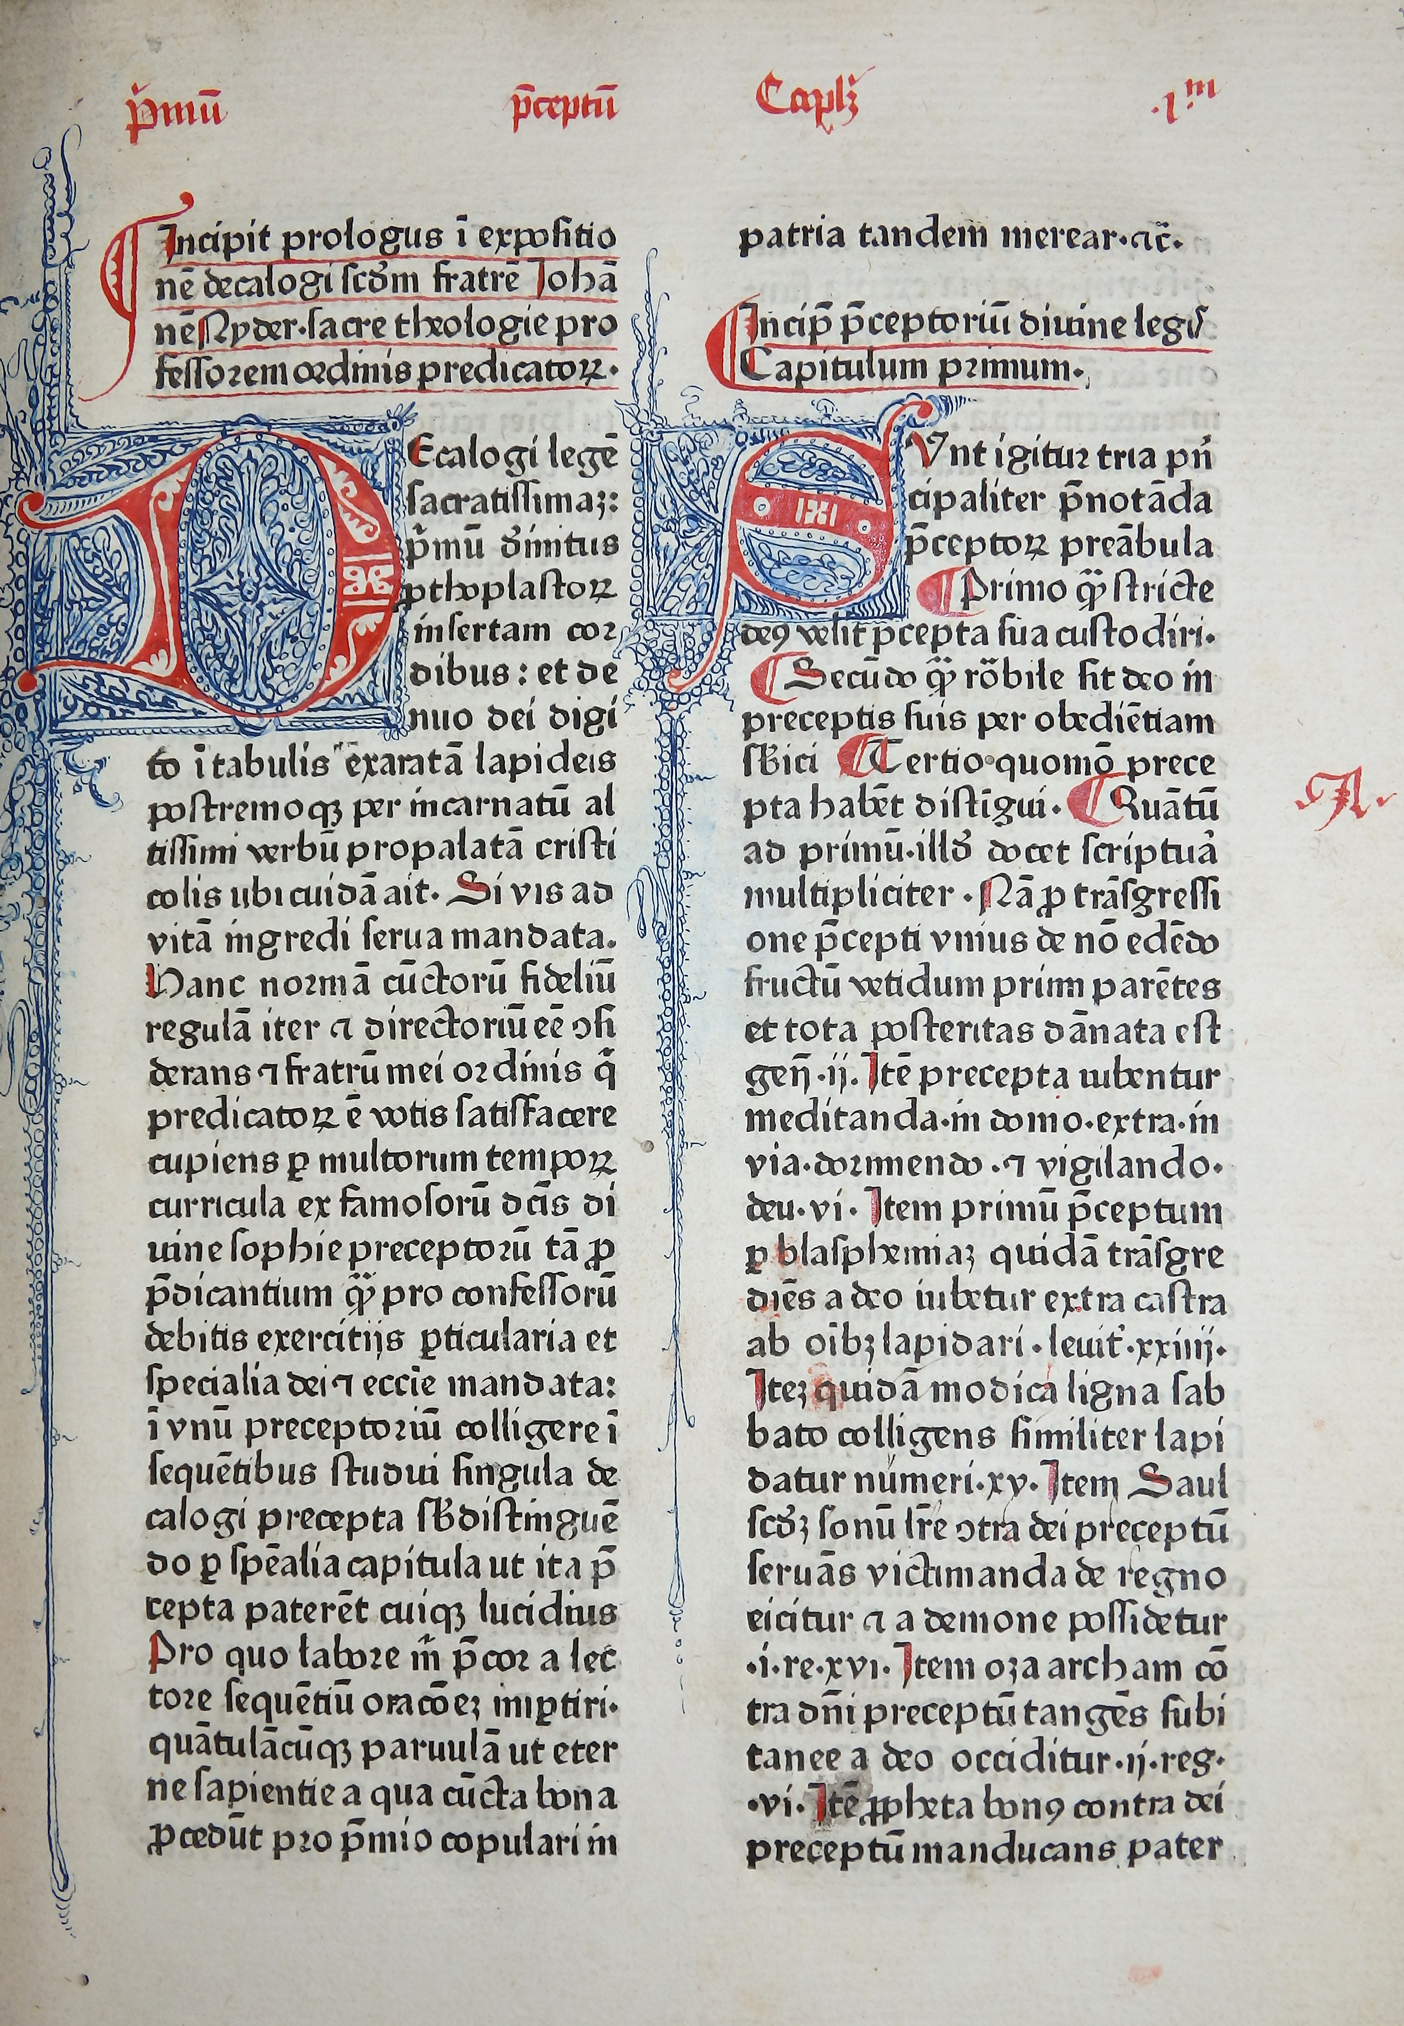 p̄mū p̄ceptū Capl'ꝫ .1.m
Incipit prologus ī expositio
nē decalogi scd'm fratrē Johā
nē Nyder·sacre theologie pro
fessorem ordinis predicatoꝝ·
DEcalogi legē
sacratissimaꝫ:
p̄mū d'initus
ꝓthoplastoꝝ
insertam cor
dibus: et de
nuo dei digi
to ī tabulis exaratā lapideis
postremoqꝫ per incarnatū al
tissimi verbū propalatā cristi
colis ubi cuidā ait· Si vis ad
vitā ingredi serua mandata.
Hanc normā cūctorū fideliū
regulā iter ⁊ directoriū eē ↄsi
derans ⁊ fratrū mei ordinis q̄
predicatoꝝ ē votis satisfacere
cupiens ꝑ multorum tempoꝝ
curricula ex famosorū dc̄is di
uine sophie preceptorū tā ꝓ
p̄dicantium qꝫ pro confessorū
debitis exercitijs ꝑticularia et
specialia dei ⁊ eccīe mandata:
ī vnū preceptoriū colligere ī
sequētibus studui singula de
calogi precepta sb'distinguē
do ꝑ spēalia capitula ut ita p̄
cepta paterēt cuiqꝫ lucidius
Pro quo labore m̄ p̄cor a lec
tore sequētiū oracōeꝫ imꝑtiri·
quātulācūqꝫ paruulā ut eter
ne sapientie a qua cūcta bona
ꝓcedūt pro p̄mio copulari in
patria tandem merear·⁊c̄·
Incip̄ p̄ceptoriū diuine legis
Capitulum primum·
SVnt igitur tria pn̄
cipaliter p̄notāda
p̄ceptoꝝ preābula
Primo qꝫ stricte
deꝯ velit p̄cepta sua custodiri·
Secūdo qꝫ rōbile sit deo in
preceptis suis per obediētiam
sb'ici Tertio quomō prece
pta habēt distīgui· Quātū
A.
ad primū·illd' docet scriptura
multipliciter · Nā ꝓ trāsgressi
one p̄cepti vnius de nō edēdo
fructū vetidum primi parētes
et tota posteritas dānata est
geñ·ij· Itē precepta iubentur
meditanda·in domo·extra·in
via·dormiendo·⁊ vigilando·
deu·vi· Item primū p̄ceptum
ꝑ blasphemiaꝫ quidā trāsgre
diēs a deo iubetur extra castra
ab oībꝫ lapidari·leuit'·xxiiij·
Iteꝫ quidā modica ligna sab
bato colligens similiter lapi
datur numeri·xv· Item Saul
scd'ꝫ sonū lr̄e ↄtra dei preceptū
seruās victimanda de regno
eicitur ⁊ a demone possidetur
·i·re·xvi· Item oza archam cō
tra dn̄i preceptū tangēs subi
tanee a deo occiditur·ij·reg·
·vi· Itē ꝓpheta bonꝯ contra dei
preceptū manducans pater